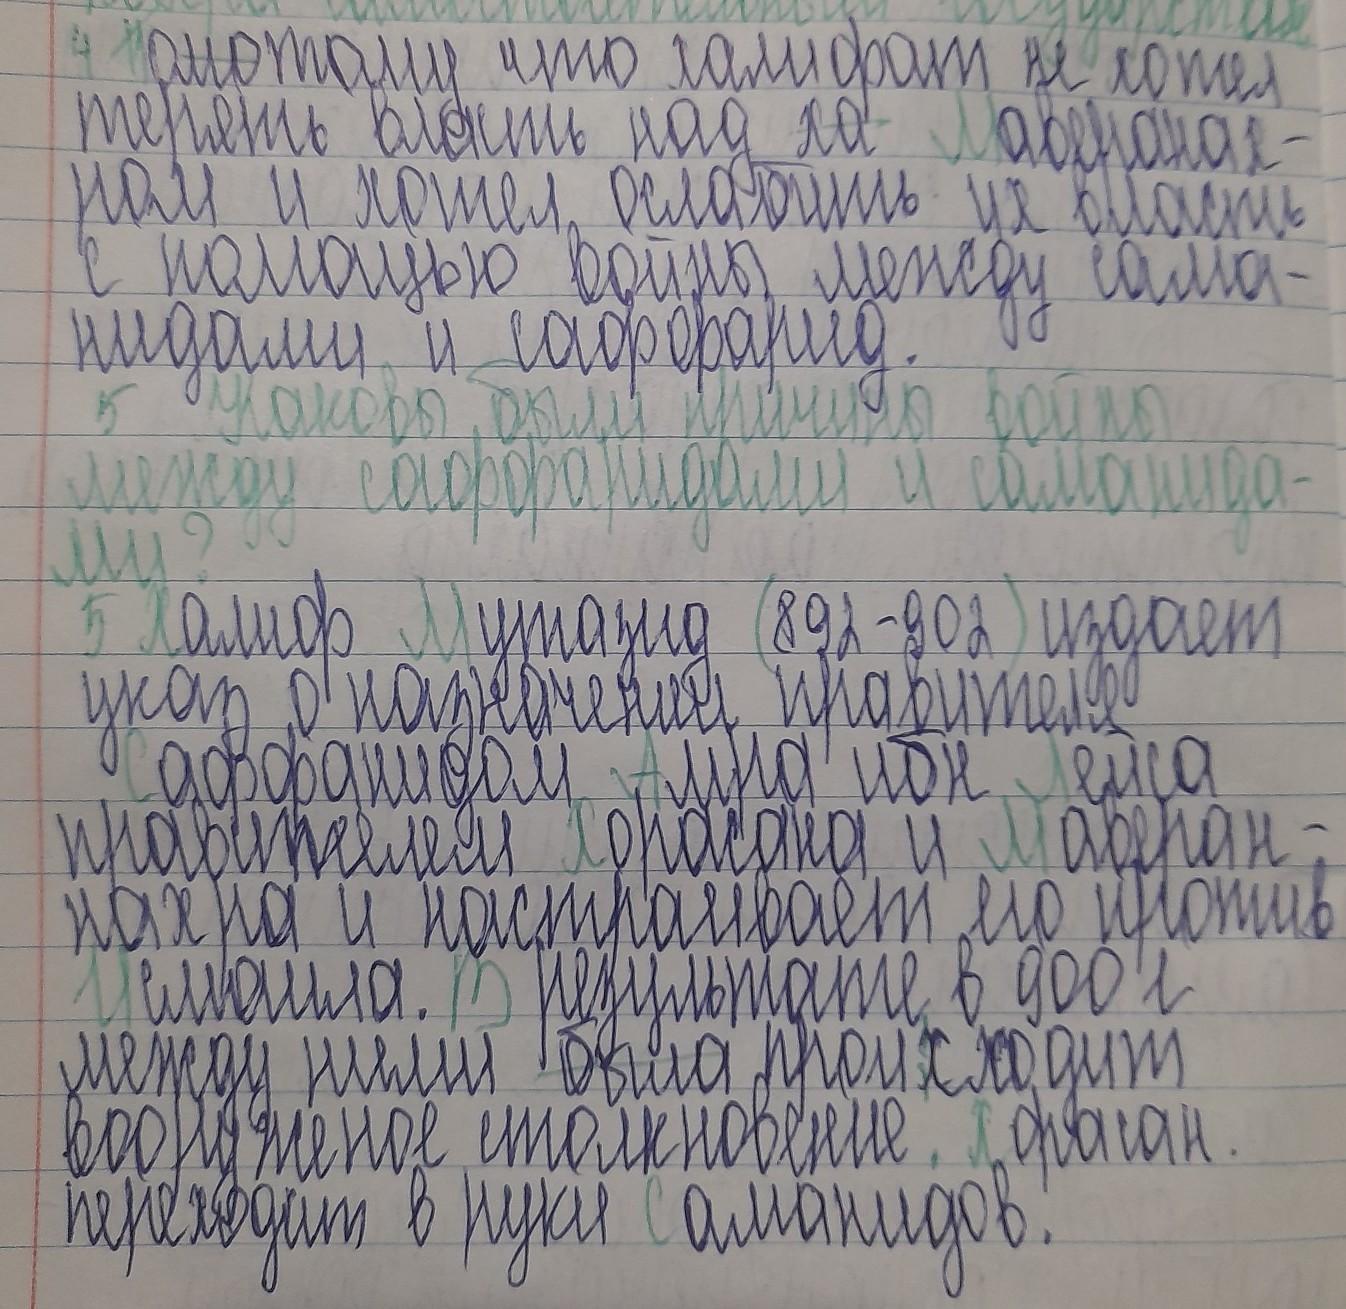 4 Паотому что халифат не хотел
терять власть над ха Мавераннах-
ром и хотел ослабить их власть
с помощью войны между сама-
нидами и саффарид.
5 Каковы были причины войны
между саффаридами и саманида-
ми?
5 Халиф Мутазид (892-902) издает
указ о назначении правителя
Саффаридом Амра ибн Лейса
правителем Хорасана и Маверан-
нахра и настраивает его против
Исмаила. В результате в 900 г
между ними была происходит
вооруженое столкновение. Хорасан.
переходит в руки Саманидов.